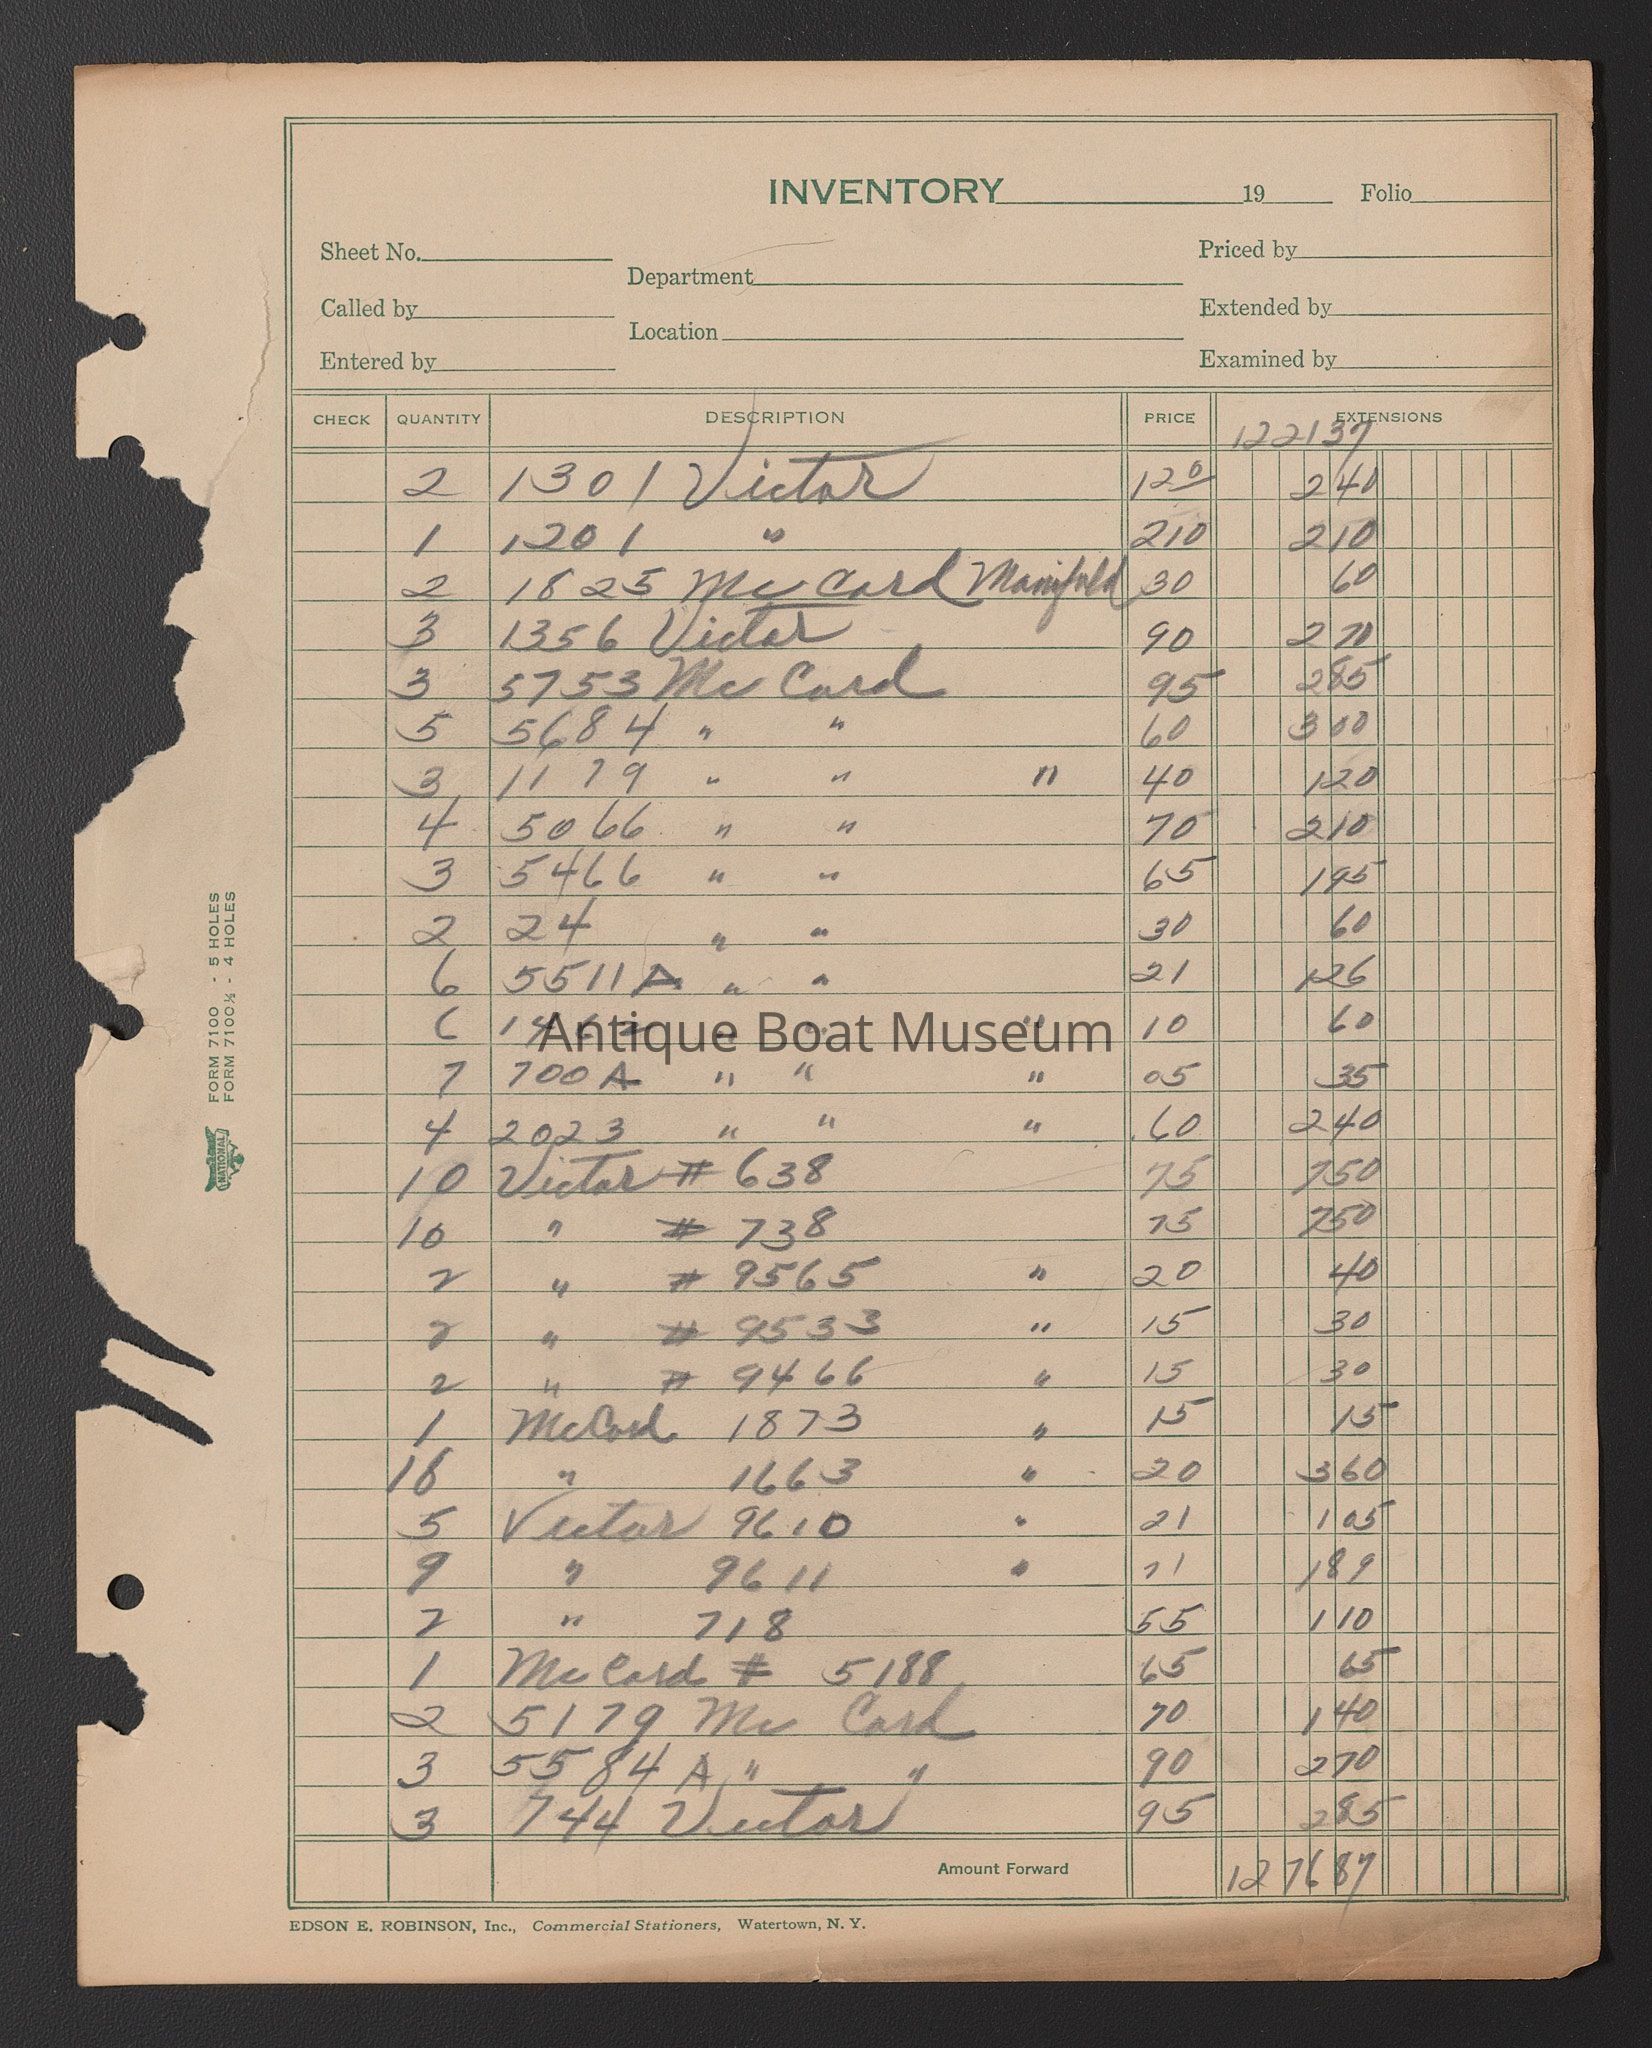 INVENTORY 19 Folio
Sheet No. Priced by
Department
Called by Extended by
Location
Entered by Examined by
CHECK QUANTITY DESCRIPTION PRICE EXTENSIONS
122137
2 1301 Victor 120 240
1 1201 " 210 210
2 1825 McCord Manifold 30 60
3 1356 Victor 90 270
3 5753 Mc Cord 95 285
5 5684 " " 60 300
3 1179 " " " 40 120
4 5066 " " 70 210
3 5466 " " 65 195
2 24 " " 30 60
6 5511A " " 21 126
6 " " " 10 60
7 700A " " " 05 35
4 2023 " " " 60 240
10 Victor # 638 75 750
10 " # 738 75 750
2 " # 9565 " 20 40
2 " # 9533 " 15 30
2 " # 9466 " 15 30
1 McCord 1873 " 15 15
18 " 1663 " 20 360
5 Victor 9610 " 21 105
9 " 9611 " 21 189
2 " 718 55 110
1 McCord # 5188 65 65
2 5179 Mc Cord 70 140
3 5584 A " " 90 270
3 744 Victor 95 285
Amount Forward 127687
EDSON E. ROBINSON, Inc., Commercial Stationers, Watertown, N. Y.
FORM 7100 - 5 HOLES
FORM 7100½ - 4 HOLES
NATIONAL
Antique Boat Museum